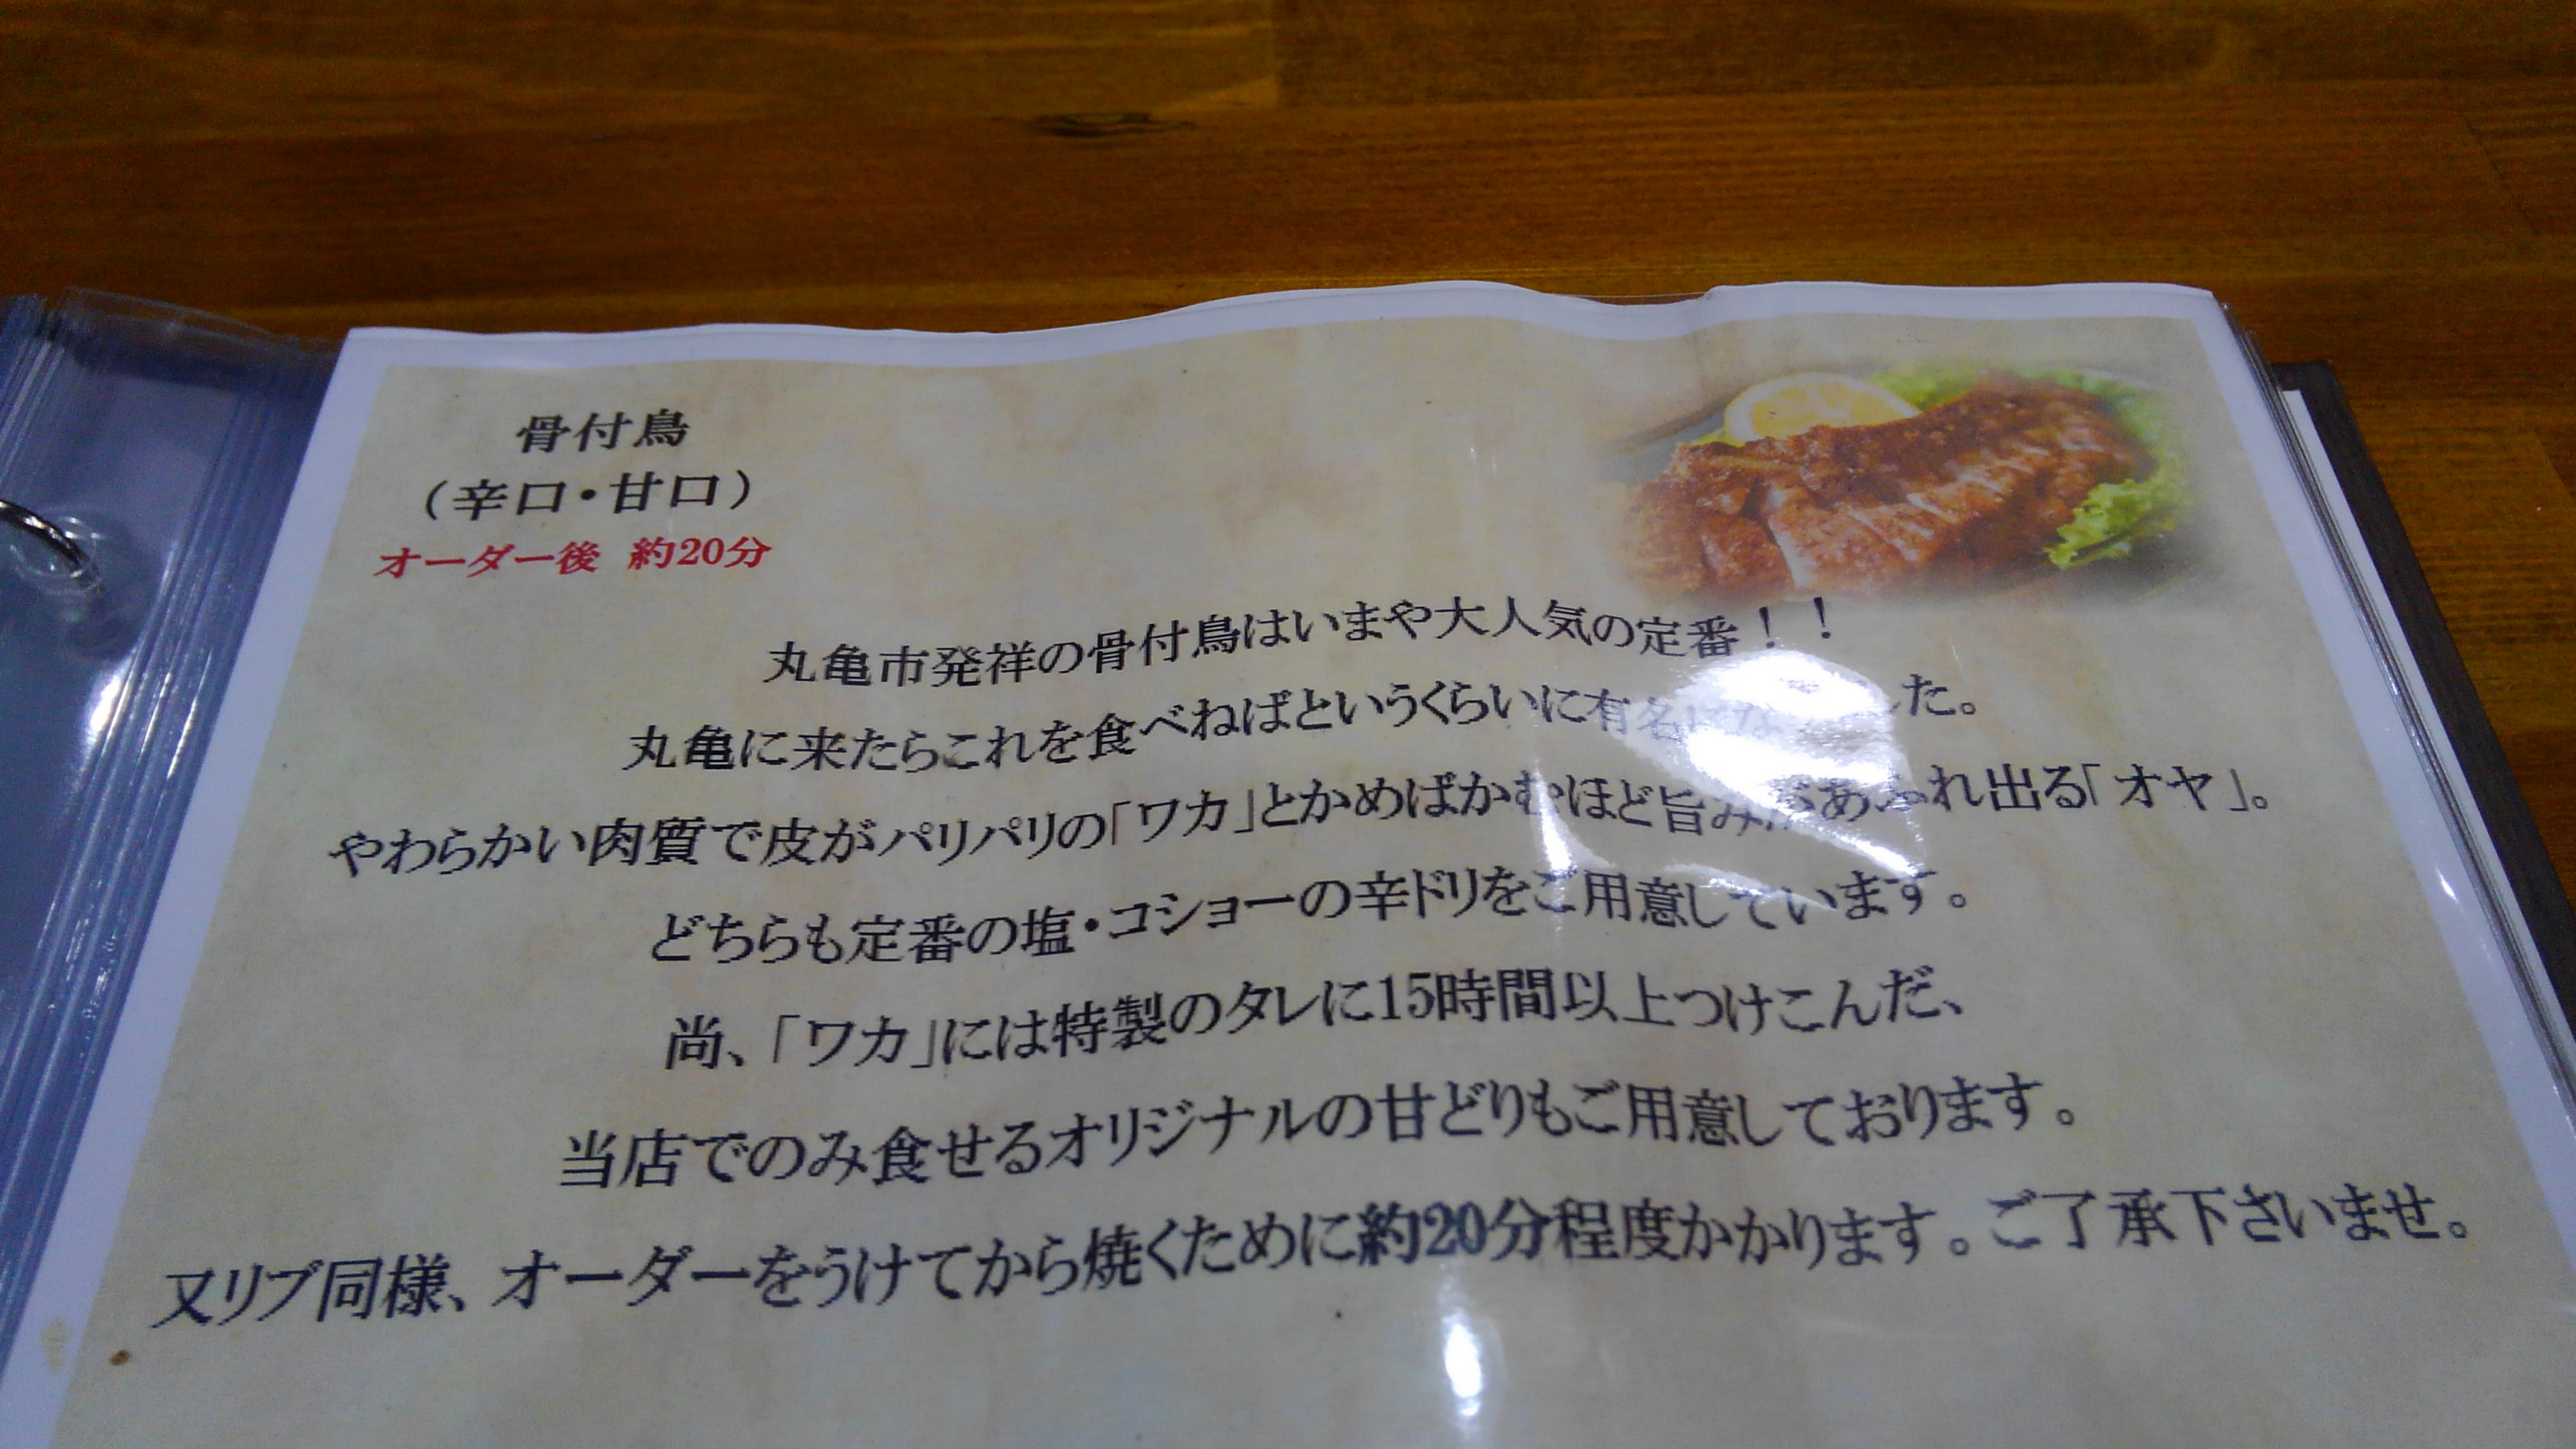 骨付鳥
（辛口・甘口）
オーダー後 約20分
丸亀市発祥の骨付鳥はいまや大人気の定番！！
丸亀に来たらこれを食べねばというくらいに有名になりました。
やわらかい肉質で皮がパリパリの「ワカ」とかめばかむほど旨みがあふれ出る「オヤ」。
どちらも定番の塩・コショーの辛ドリをご用意しています。
尚、「ワカ」には特製のタレに15時間以上つけこんだ、
当店でのみ食せるオリジナルの甘どりもご用意しております。
又リブ同様、オーダーをうけてから焼くために約20分程度かかります。ご了承下さいませ。